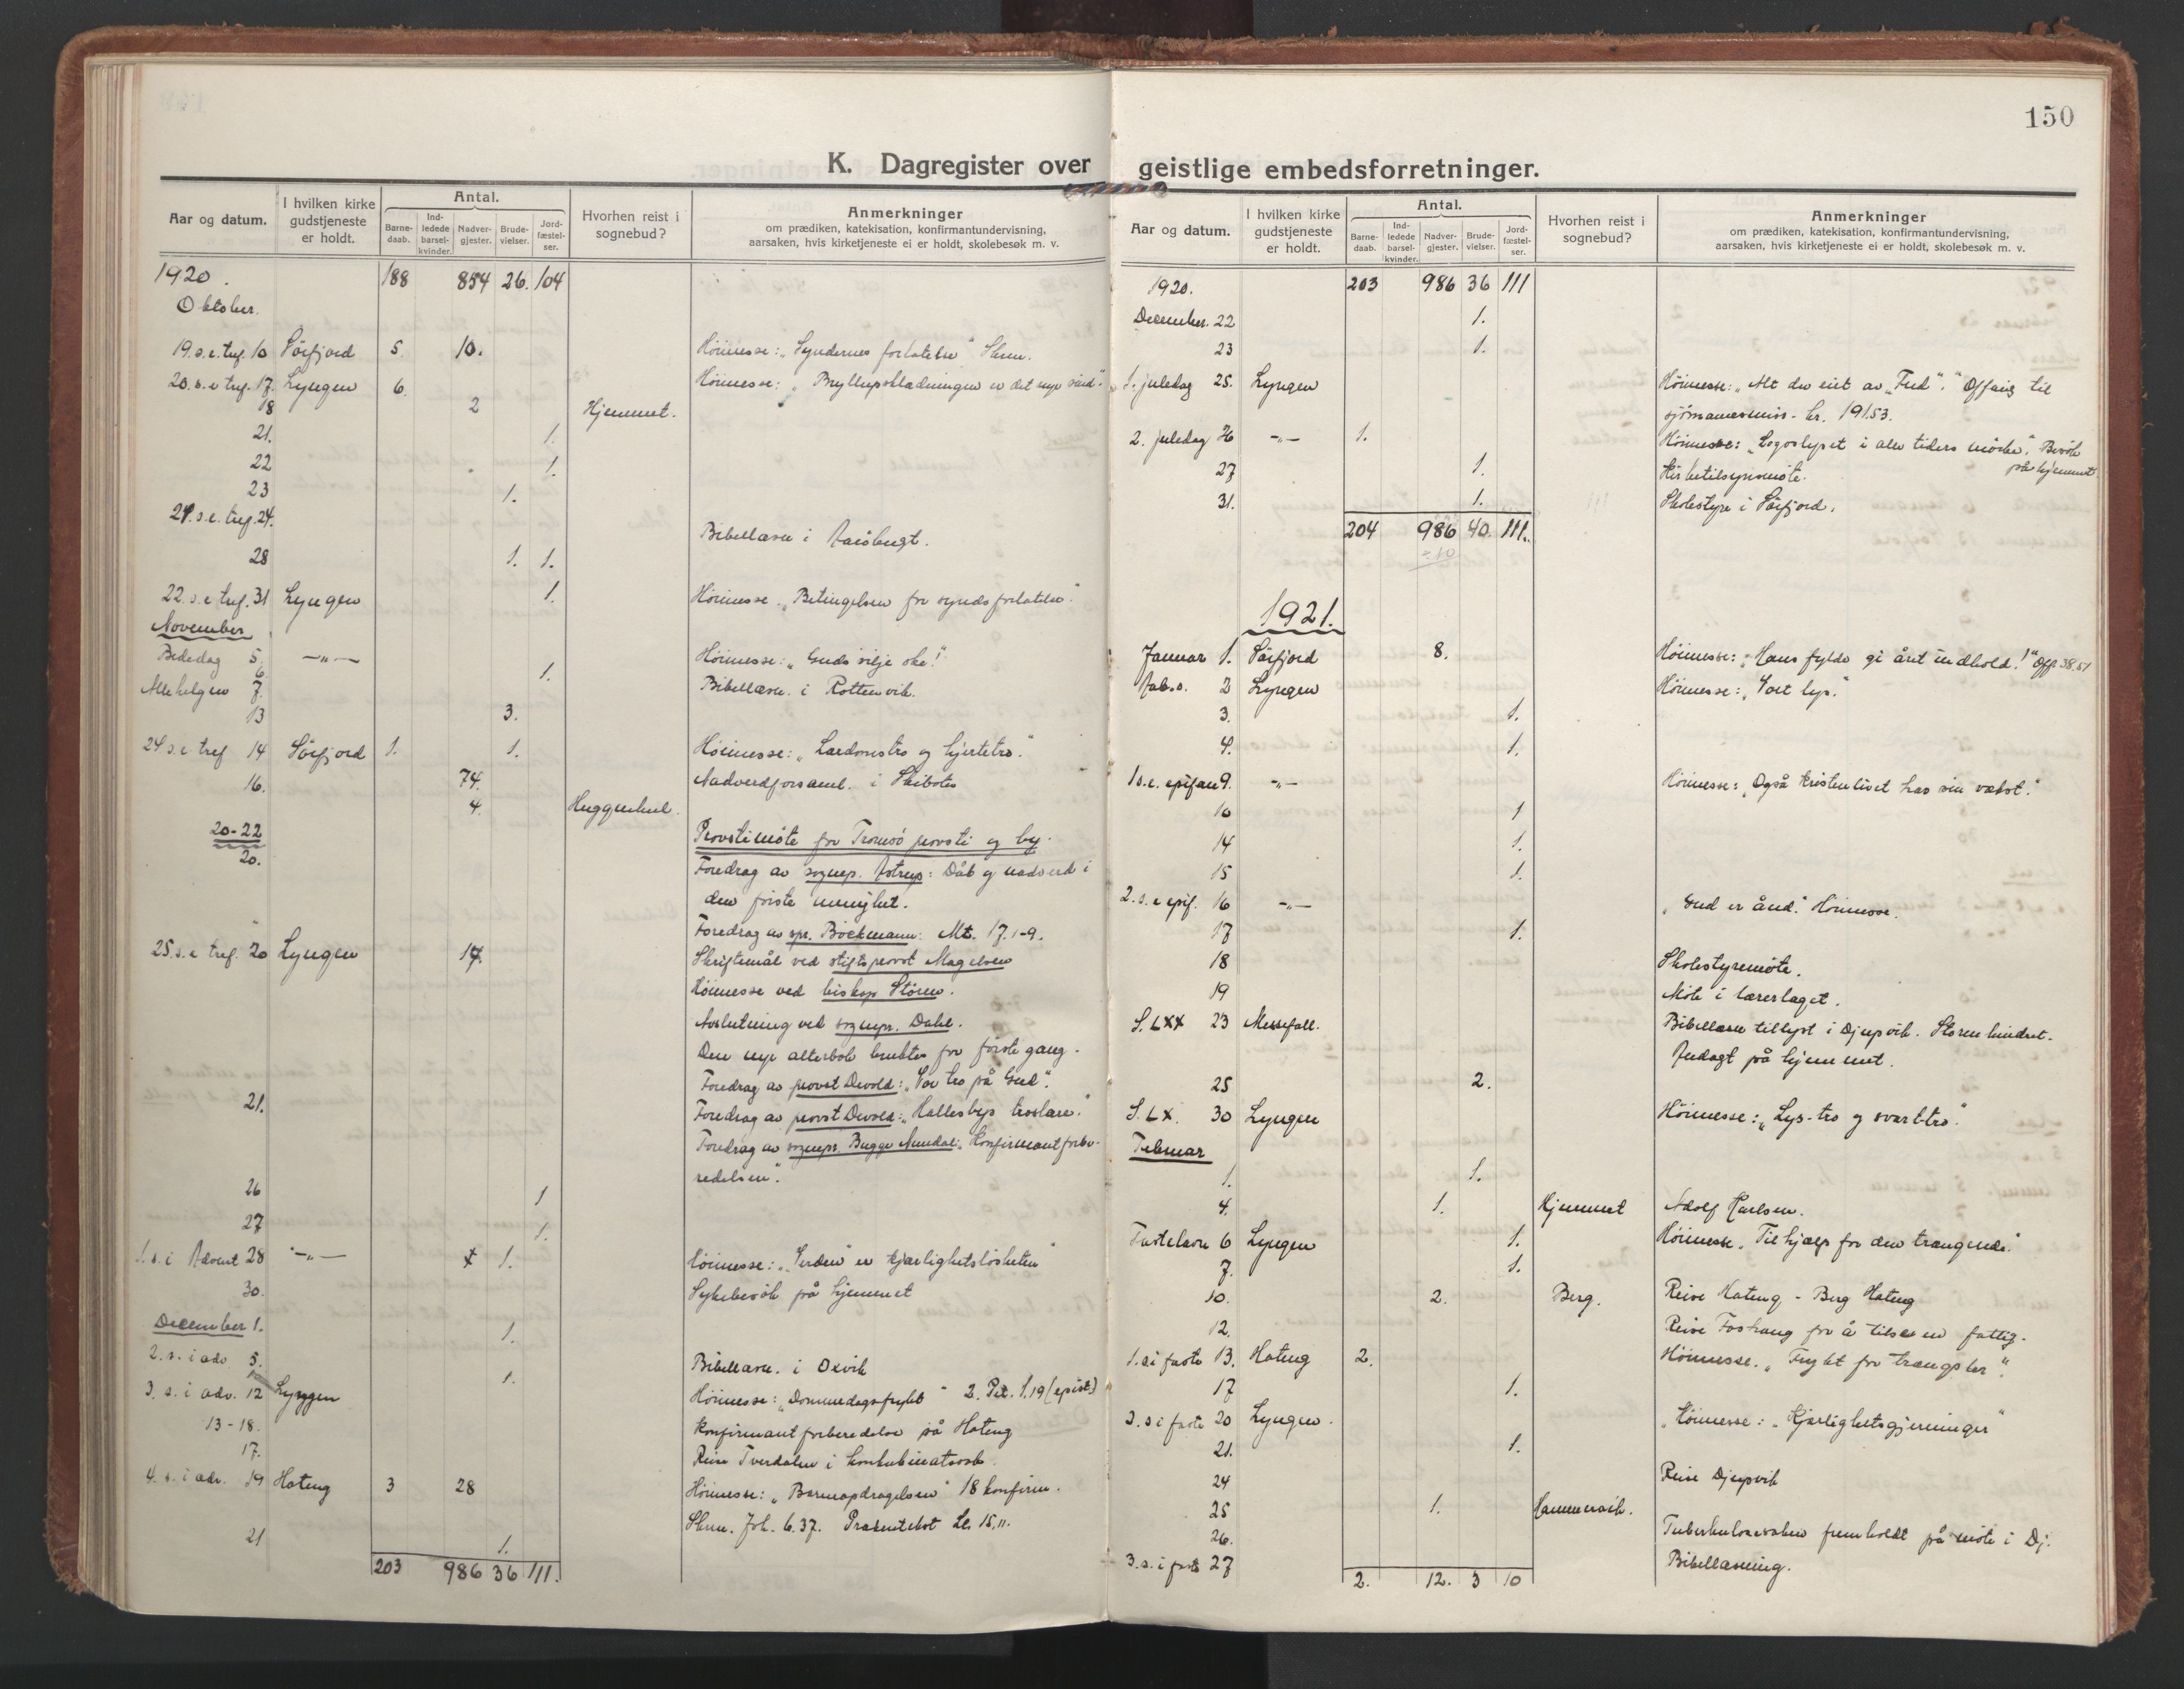 150
K. Dagregister over geistlige embedsforretninger.
Aar og datum. I hvilken kirke gudstjeneste er holdt. Antal. Barne-daab. Ind-ledede barsel-kvinder. Nadver-gjester. Brude-vielser. Jord-fæstel-ser. Hvorhen reist i sognebud? Anmerkninger om prædiken, katekisation, konfirmantundervisning, aarsaken, hvis kirketjeneste ei er holdt, skolebesøk m. v.
1920. 188 854 26. 104
Oktober.
19.s.e.tref. 10 Sörfjord 5. 10. Höimesse: "Syndernes forlatelse" Skrm.
20.s.e tref. 17. Lyngen 6. Höimesse: "Bryllupsklædningen er det nye sind".
18 2 Hjemmet.
21. 1.
22 1.
23 1.
21.s.e.tref.24.
Bibellæsn i
28 1. 1.
22.s.e tref. 31 Lyngen 1. Höimesse. "Betingelsen for syndsforlatelse."
November
Bededag 5. -"- Höimesse: "Guds vilje ske!"
6. 1.
Allehelgen 7. Bibellæsn. i Rottenvik.
13 3.
24 s.e tref 14 Sörfjord 1. 1. Höimesse: "Lærdomstro og hjertetro."
16. 74. Nadverdforsaml. i Skibotn
4.
20-22 Provstimöte for Tromsö provsti og by.
20. Foredrag av sognep. Astrup: Dåb og nadverd i
den förste menighet.
Foredrag av spr. Böckmann: Mt. 17.1-9.
25.s.e tref. 20 Lyngen 17. Skriftemål ved stiftsprovst Magelsen
Höimesse ved biskop Stören.
Avslutning ved sognepr. Dahl.
Den nye alterbok bruktes for förste gang.
Foredrag av provst Devold: "Vor tro på Gud".
21. Foredrag av provst Devold: "Hallesbys troslære."
Foredrag av sognepr. Bugge Amundal: "Konfirmantforbe-
redelsen".
26 1
27 1.
1.s.i Advent 28 -"- 1. Höimesse: "Verden er kjærlighetslösheten"
30. Sykebesök på hjemmet
December 1. 1.
2.s.i adv. 5. Bibellæsn. i Oxvik
1.
3.s.i adv. 12 Lyngen Höimesse: "Dommedagsfrykt" 2. Pet. 1.19 (epist.)
13-18. Konfirmantforberedelse på Hateng
17. Reise Tverdalen i konkubinatssak.
4.s.i adv. 19 Hateng 3 28 Höimesse: "Barneopdragelsen" 18 konfirm.
Skrm. Joh. 6.37.
21 1.
203 986 36 111.
Aar og datum. I hvilken kirke gudstjeneste er holdt. Antal. Barne-daab. Ind-ledede barsel-kvinder. Nadver-gjester. Brude-vielser. Jord-fæstel-ser. Hvorhen reist i sognebud? Anmerkninger om prædiken, katekisation, konfirmantundervisning, aarsaken, hvis kirketjeneste ei er holdt, skolebesøk m. v.
1920. 203 986 36 111
December. 22 1.
23 1.
1. juledag 25. Lyngen Höimesse: "Alt du eiet av Gud". Offring til
sjömannsmiss. kr. 191.53.
2. juledag 26 -"- 1. Höimesse: "Logoslyset i alle tiders mörke". Besök
på hjemmet
27 1. Kirketilsynsmöte.
31. 1. Skolestyre i Sörfjord.
204 986 40. 111.
1921.
Januar 1. Sörfjord 8. Höimesse: "Hans fylde gi året indhold!" Off. 38.51
2 Lyngen Höimesse: "Vort lys."
3. 1.
4. 1.
1 s.e. epifan 9. -"- Höimesse: "Også kristenlivet har sin vækst."
10 1
14 1.
15 1.
2.s.e epif. 16 -"- "Gud er ånd." Höimesse.
17 1.
18 Skolestyremöte.
19 Möte i lærerlaget.
S. LXX 23 Messefall. Bibellæsn tillyst i Djupvik. Storm hindret.
Andagt på hjemmet.
25 2.
S. LX. 30 Lyngen Höimesse: "Lys-tro og svart-tro".
Februar
1. 1.
4. 1. Hjemmet Adolf Karlsen.
Fastelavn 6 Lyngen 1. Höimesse. "Til hjælp for den trængende."
7. 1.
10. 2. Berg. Reise Hateng - Berg Hateng
12. Reise for å tilse en fattig.
1.s.i faste 13. Hateng 2. Höimesse. "Frykt for trængsler".
17 1.
2.s.i faste 20 Lyngen. Höimesse: "Kjærlighetsgjerninger"
21. 1.
24 Reise Djupvik
25 1. Hammervik.
26. Tuberkulosesaken fremholdt på möte i Dj.
3.s.i faste 27 Bibellæsning.
2. 12. 3 10